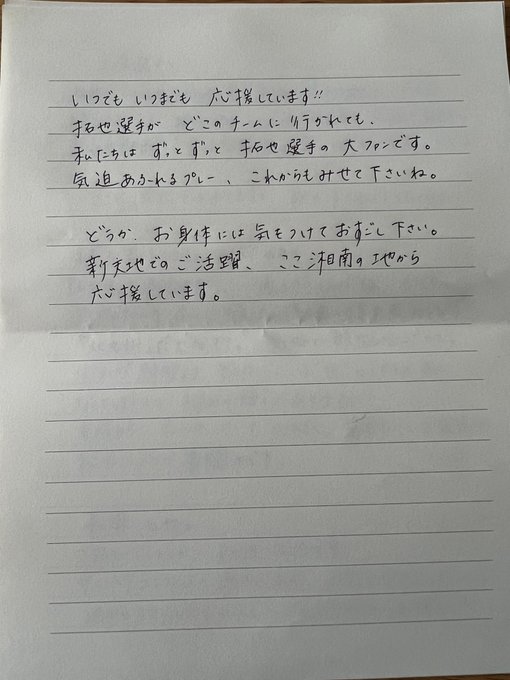 いつでも いつまでも 応援しています!!
拓也選手が どこのチームに行かれても、
私たちは ずっと ずっと 拓也選手の 大ファンです。
気迫あふれるプレー、これからもみせて下さいね。
どうか、お身体には気をつけておすごし下さい。
新天地でのご活躍、ここ湘南の地から
応援しています。